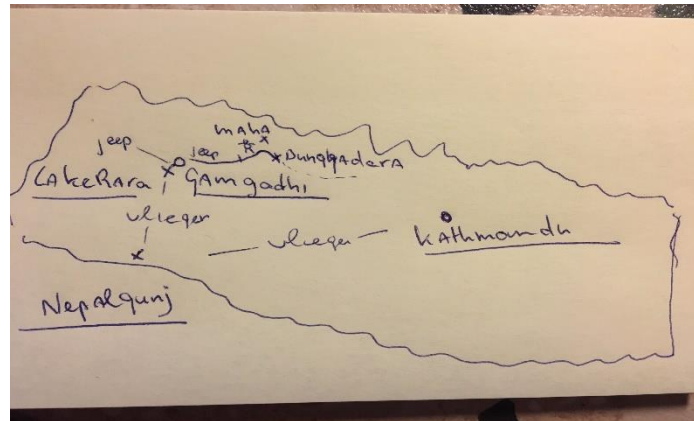 MAHA
jeep
jeep
Dunggadara
LAkeRAra
GAmgadhi
vlieger
vlieger
KAthmandu
NepAlgunj